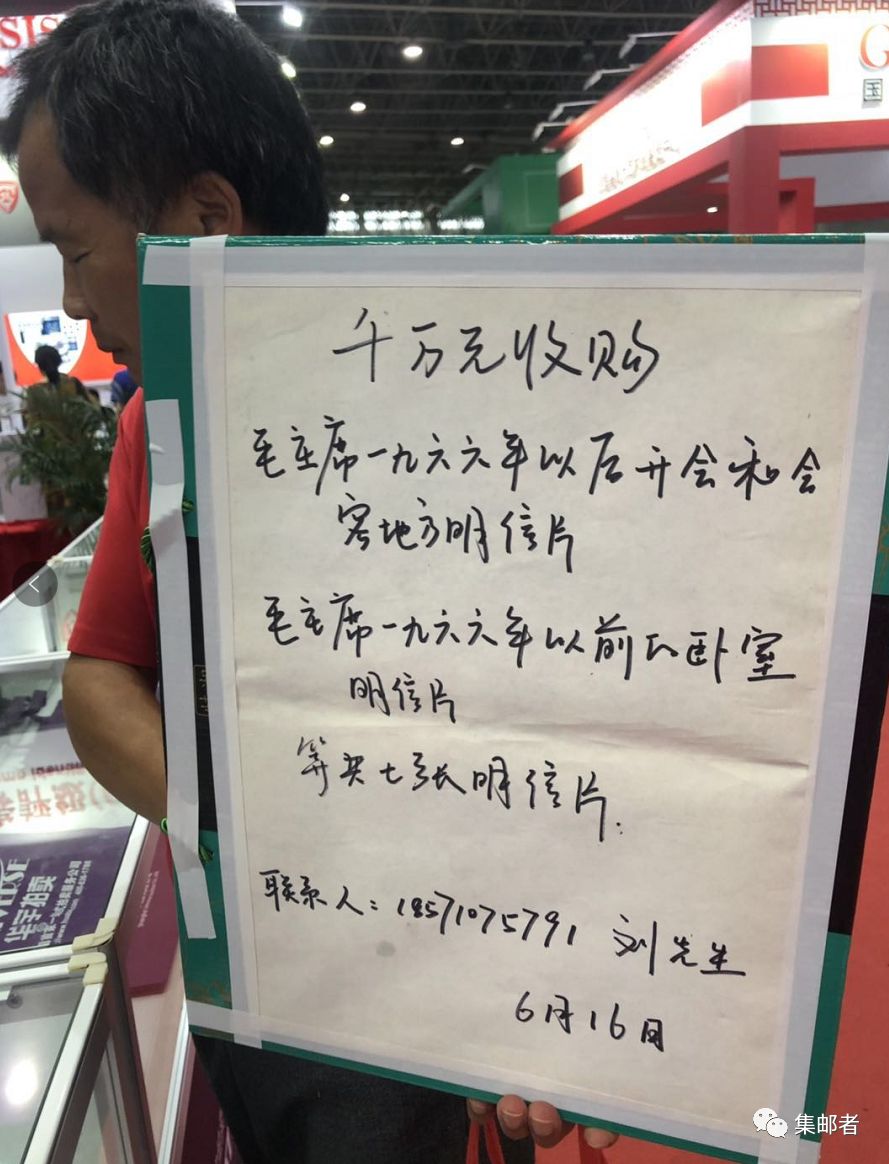 千万元收购
毛主席一九六六年以后开会和会
客地方明信片
毛主席一九六六年以前的卧室
明信片
等共七张明信片.
联系人:18571075791 刘先生
6月16日
华宇拍卖
G
国
集邮者